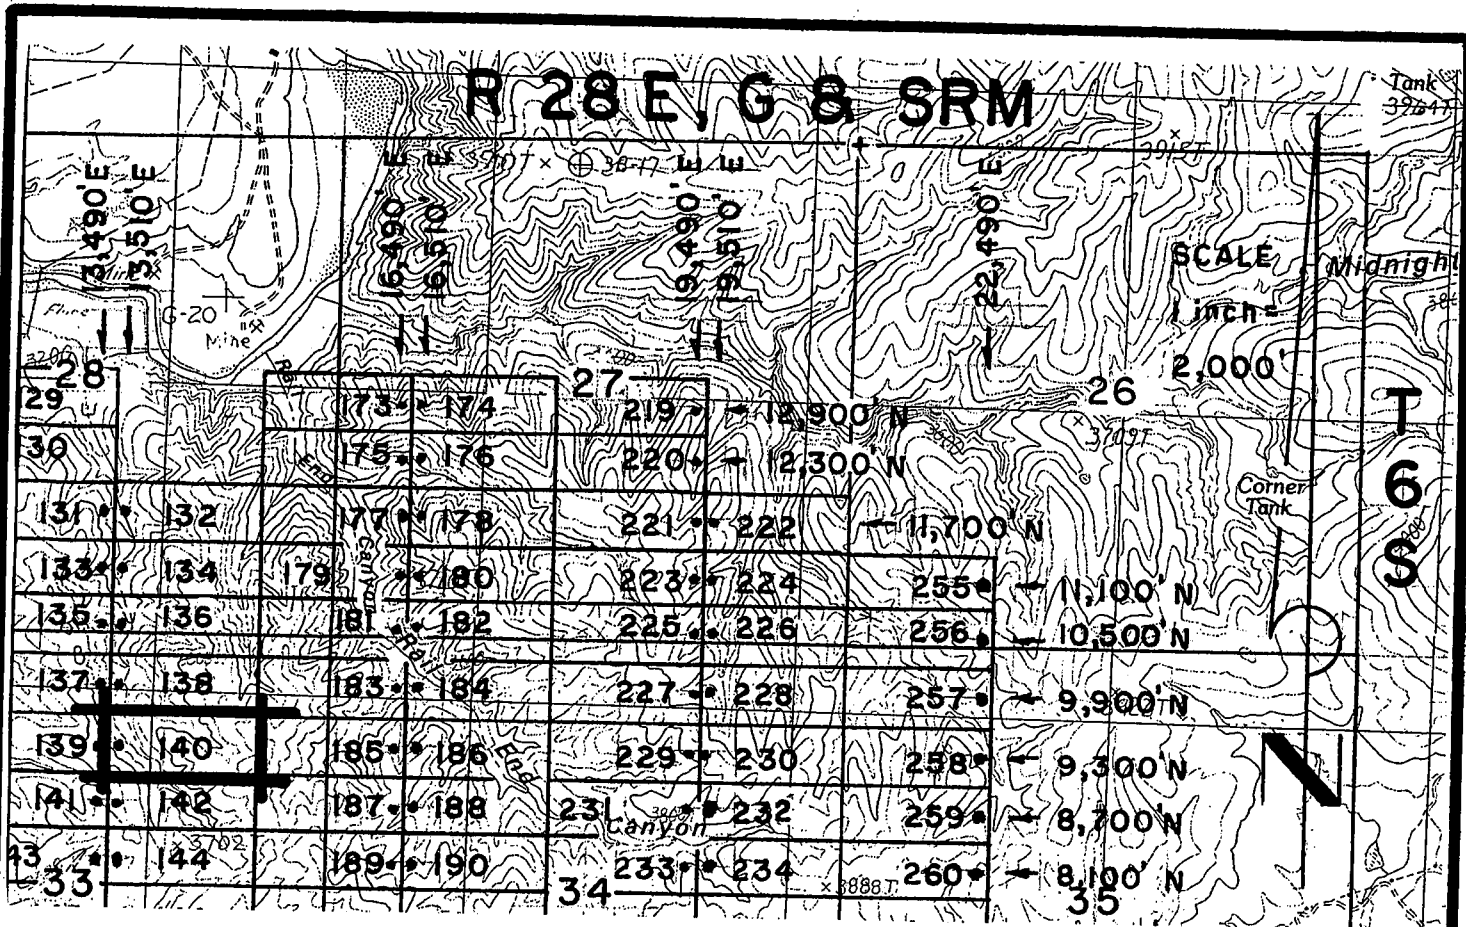 R 28 E, G & SRM
Tank
3964T
3915T
3970T 38-17
13,490' E
13,510' E
16,490' E
16,510' E
19,490' E
19,510' E
22,490' E
SCALE
1 inch =
2,000'
Midnight
G-20
Mine
28 27 26
29 173 174 219 12,900' N
3709T
30 175 176 220 12,300' N
End
T
6
S
Corner
Tank
131 132 177 178 221 222 11,700' N
Canyon
133 134 179 180 223 224 255 11,100' N
135 136 181 182 225 226 256 10,500' N
Rail
137 138 183 184 227 228 257 9,900' N
139 140 185 186 229 230 258 9,300' N
End
N
141 142 187 188 231 232 259 8,700' N
Canyon
3702
43 144 189 190 233 234 260 8,100' N
3888T
33 34 35